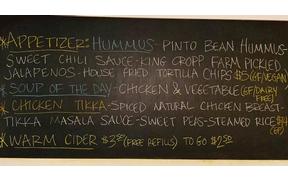 *APPETIZER: HUMMUS - PINTO BEAN HUMMUS-
SWEET CHILI SAUCE - KING CROPP FARM PICKLED
JALAPENOS - HOUSE FRIED TORTILLA CHIPS $5 (GF/VEGAN)
*SOUP OF THE DAY - CHICKEN & VEGETABLE (GF/DAIRY FREE)
*CHICKEN TIKKA - SPICED NATURAL CHICKEN BREAST-
TIKKA MASALA SAUCE - SWEET PEAS - STEAMED RICE (GF)
*WARM CIDER $3.25 (FREE REFILLS) TO GO $2.50